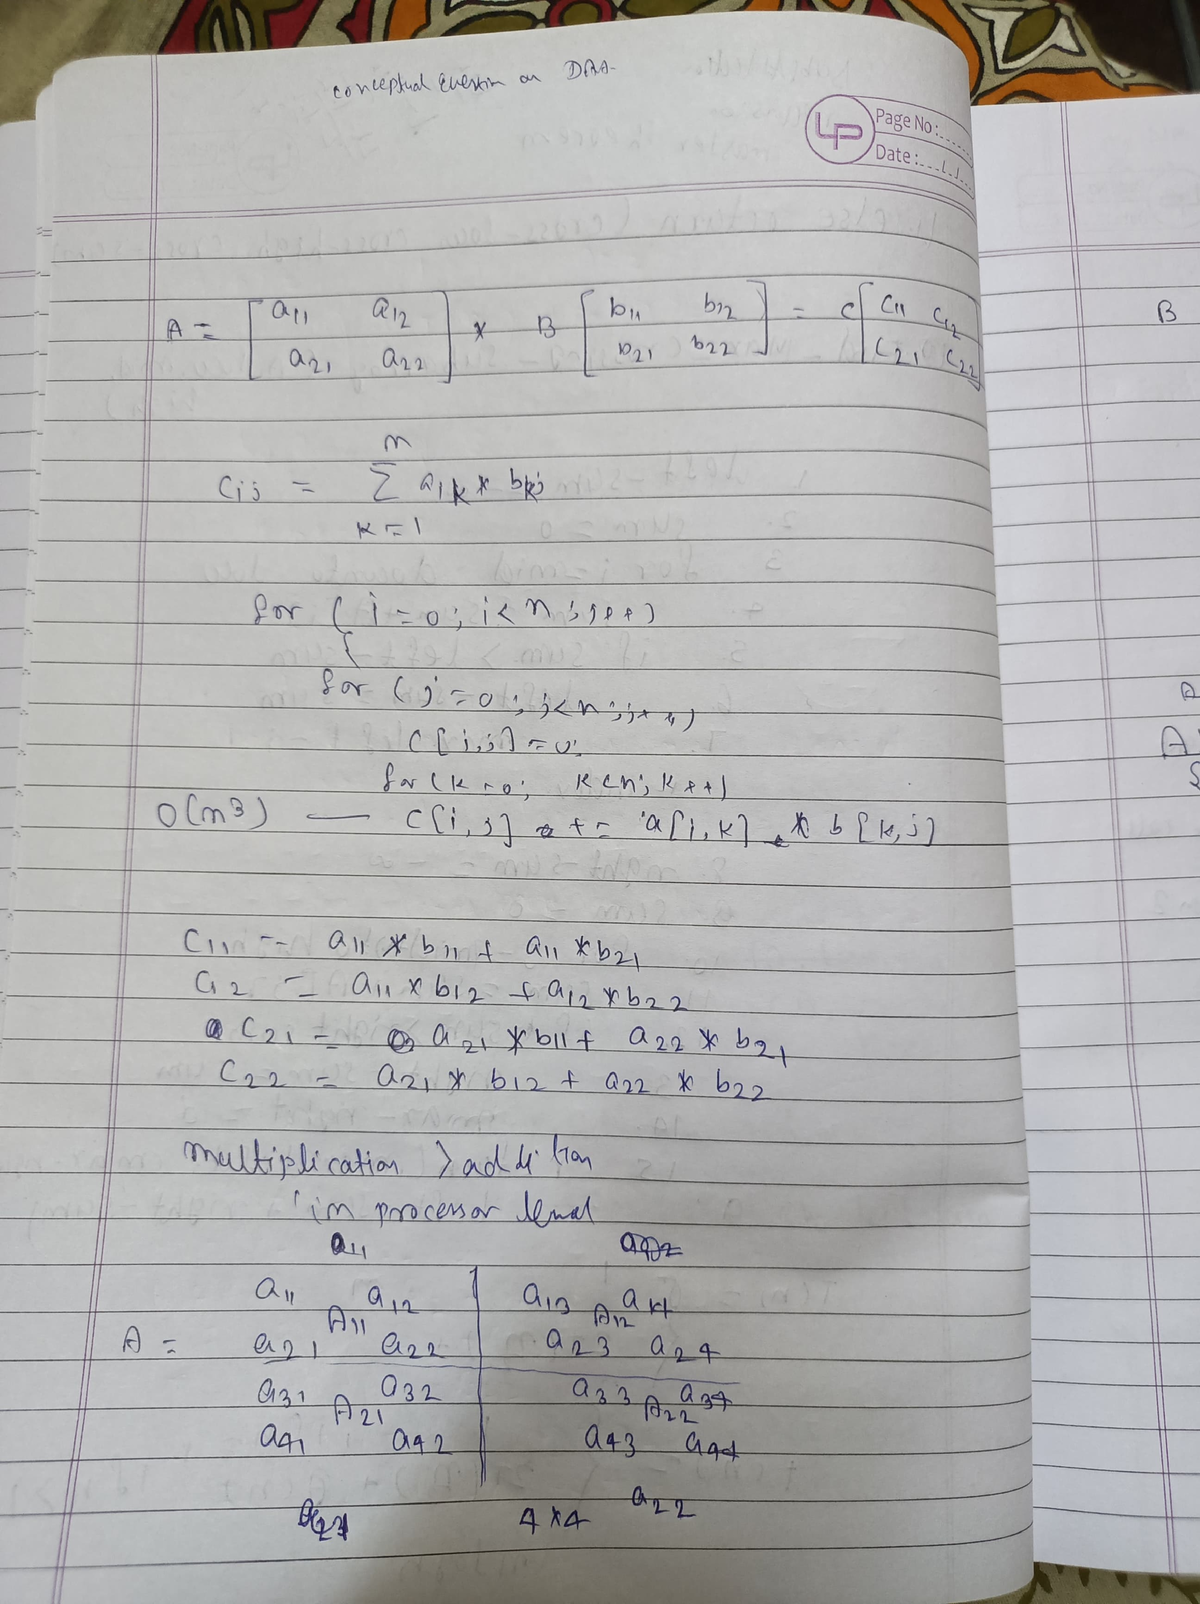 conceptual Question on DAA.
LP
Page No:
Date:
A = [ a11 a12 ] * B [ b11 b12 ] = C [ c11 c12 ]
a21 a22 b21 b22 c21 c22
n
cij = Σ a1k * bkj
k=1
for ( i = 0; i < n; i++)
{
for ( j = 0; j<n; j++)
C[i,j] = 0;
for (k=0; k<n; k++)
O(n3) — C[i,j] += a[i,k] * b[k,j]
C11 = a11 * b11 + a11 * b21
C12 = a11 * b12 + a12 * b22
C21 = a21 * b11 + a22 * b21
C22 = a21 * b12 + a22 * b22
multiplication > addition
in processor level
a11
a11 a12 a13 a14
A11 A12
A = a21 a22 a23 a24
a31 a32 a33 a34
A21 A22
a41 a42 a43 a44
4*4 a22
B
A